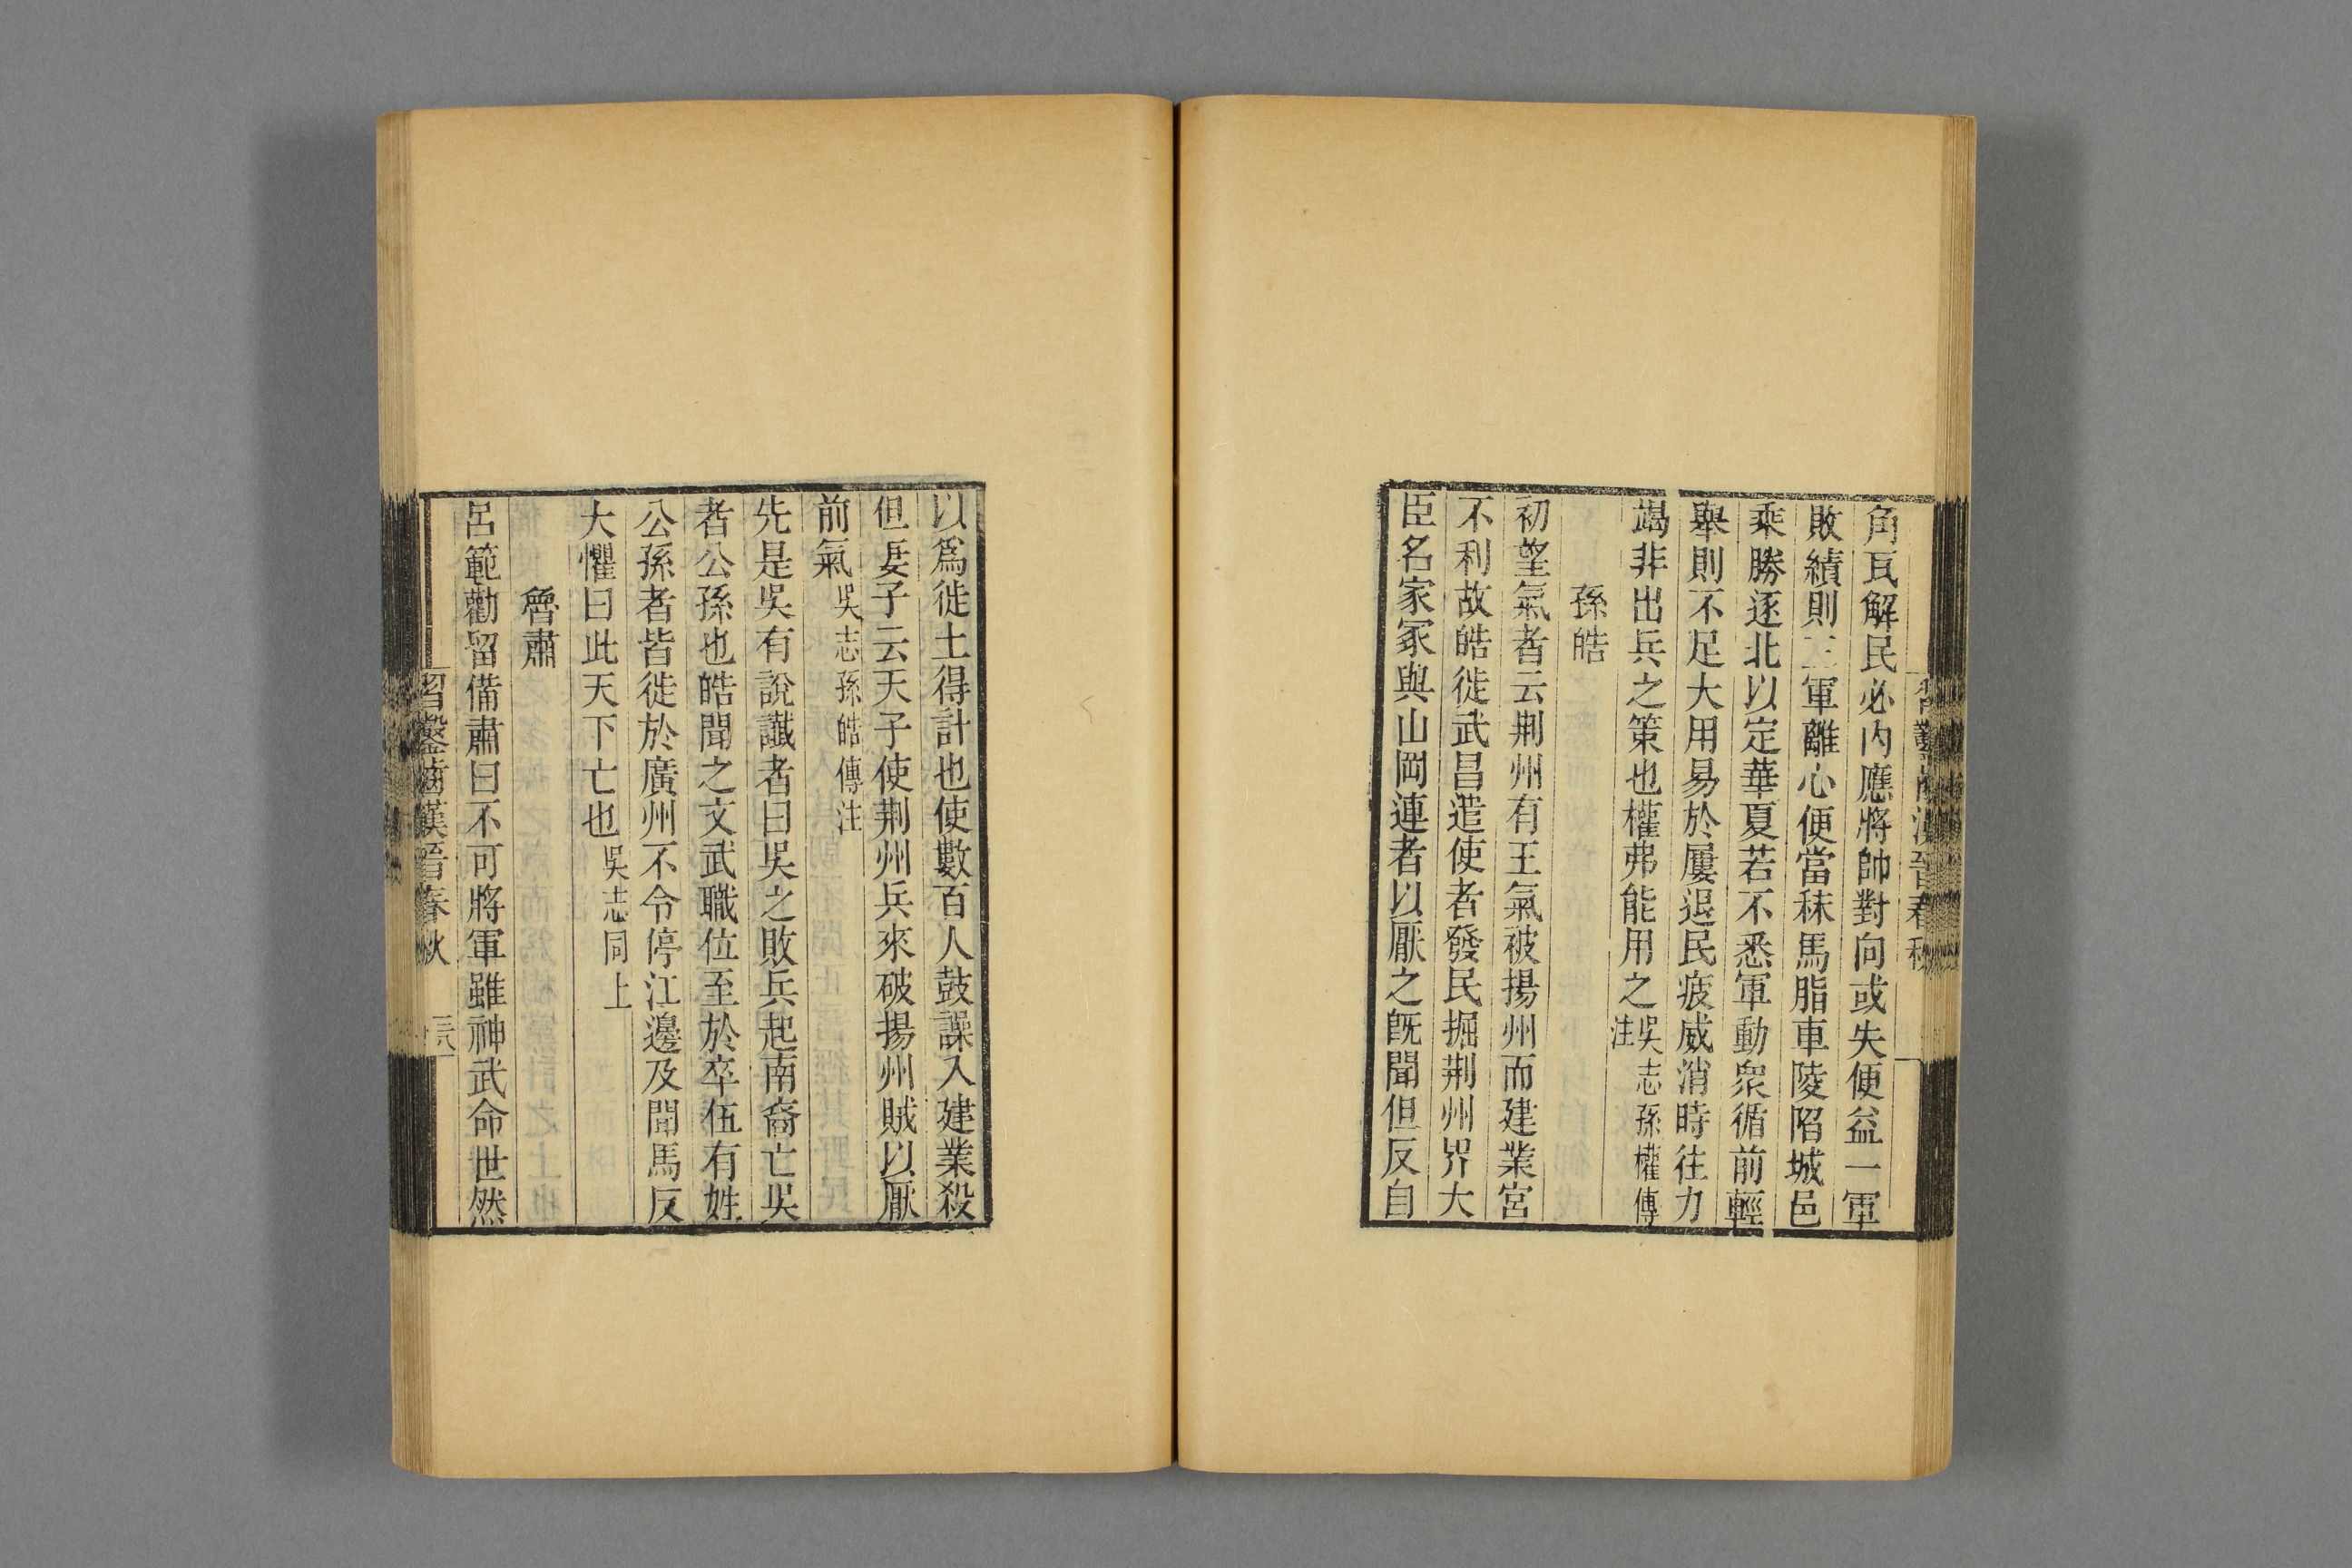 角瓦解民必内應將帥對向或失便益一軍
敗績則三軍離心便當秣馬脂車陵陷城邑
乘勝逐北以定華夏若不悉軍動衆循前輕
舉則不足大用易於屢退民疲威消時往力
竭非出兵之策也權弗能用之吳志孫權傳注
孫皓
初望氣者云荆州有王氣被揚州而建業宮
不利故皓徙武昌遣使者發民掘荆州界大
臣名家冢與山岡連者以厭之旣聞但反自
以爲徙土得計也使數百人鼓譟入建業殺
但妻子云天子使荆州兵來破揚州賊以厭
前氣吳志孫皓傳注
先是吳有說讖者曰吳之敗兵起南裔亡吳
者公孫也皓聞之文武職位至於卒伍有姓
公孫者皆徙於廣州不令停江邊及聞馬反
大懼曰此天下亡也吳志同上
魯肅
呂範勸留備肅曰不可將軍雖神武命世然
習鑿齒漢晉春秋